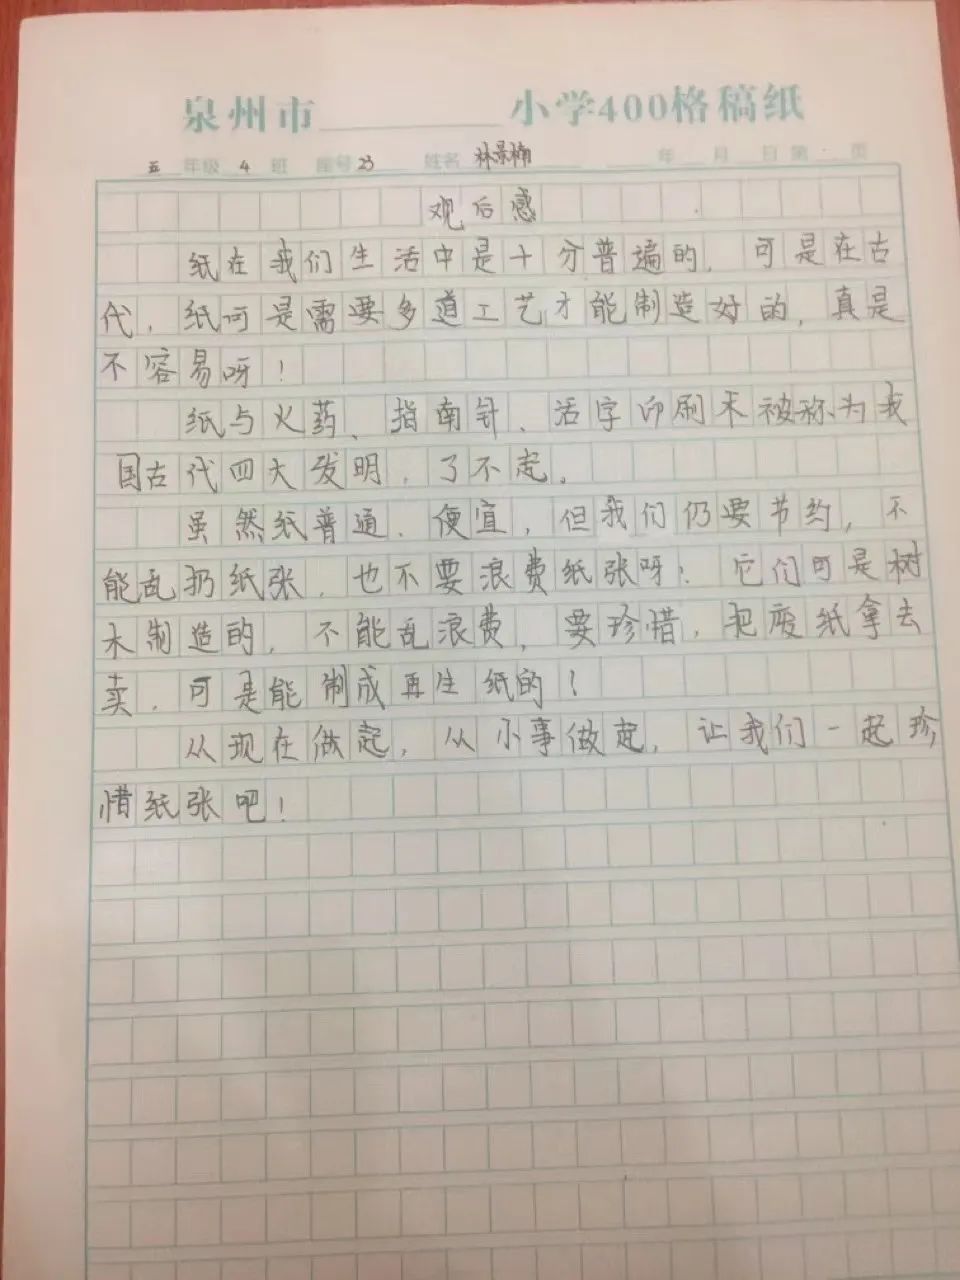 泉州市 小学400格稿纸
五 年级 4 班 座号 23 姓名 林景楠 年 月 日 第 页
观后感
纸在我们生活中是十分普遍的，可是在古
代，纸可是需要多道工艺才能制造好的，真是
不容易呀！
纸与火药、指南针、活字印刷术被称为我
国古代四大发明，了不起。
虽然纸普通、便宜，但我们仍要节约，不
能乱扔纸张，也不要浪费纸张呀！它们可是树
木制造的，不能乱浪费，要珍惜，把废纸拿去
卖，可是能制成再生纸的！
从现在做起，从小事做起，让我们一起珍
惜纸张吧！